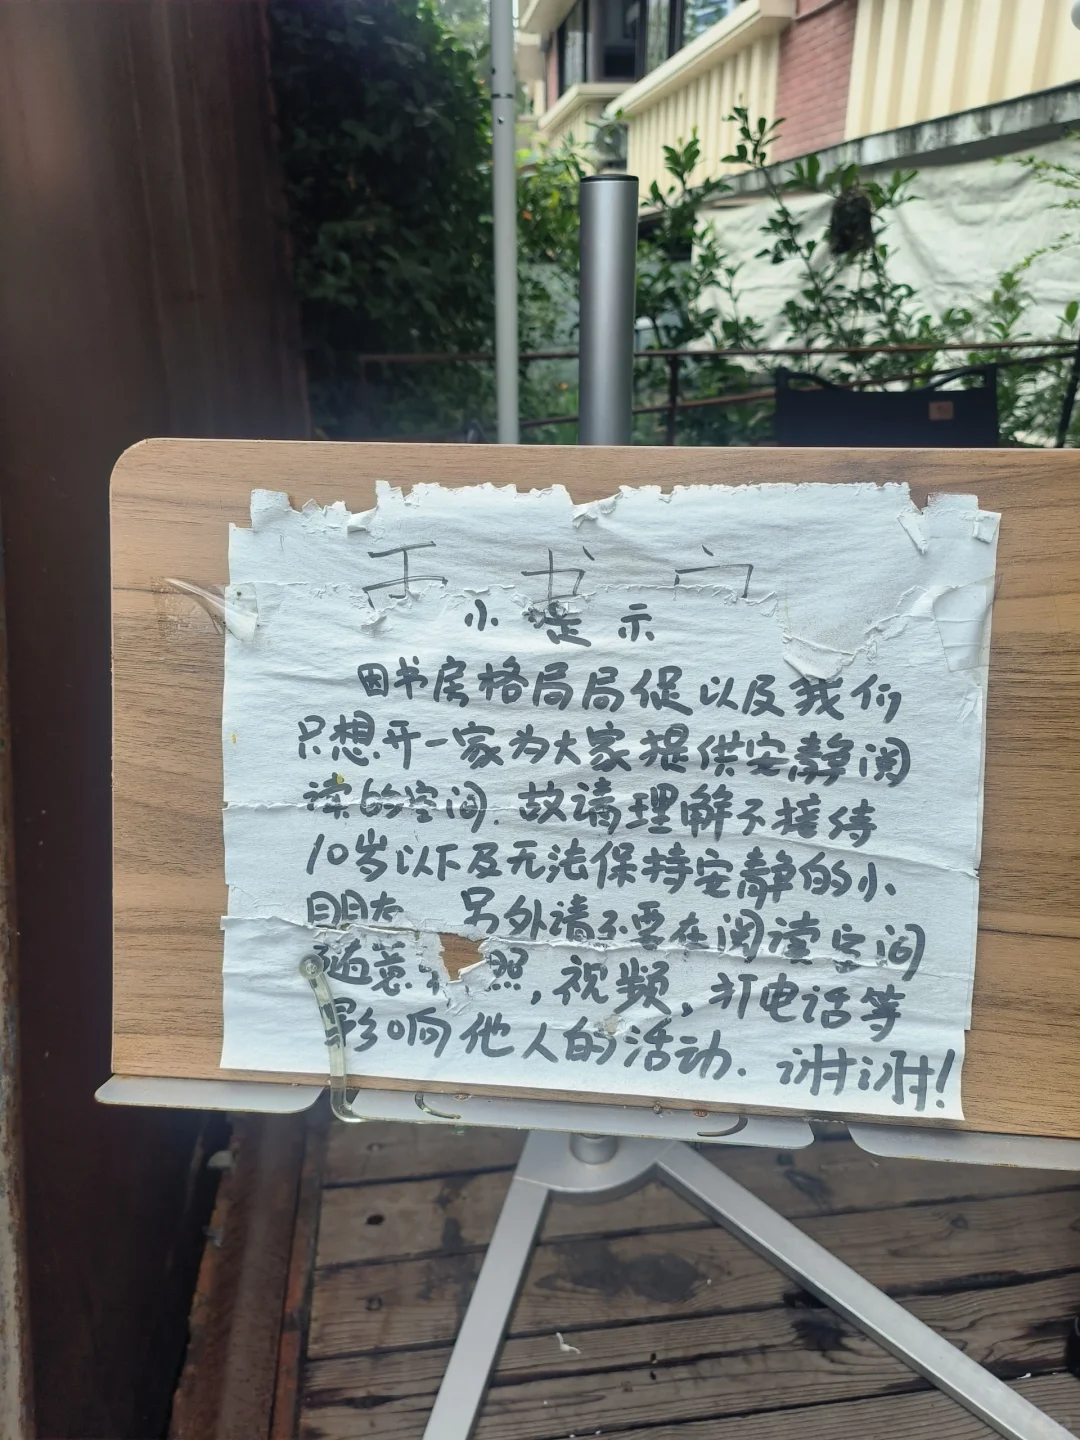 小提示
因书房格局局促以及我们
只想开一家为大家提供安静阅
读的空间.故请理解不接待
10岁以下及无法保持安静的小
朋友 另外请不要在阅读空间
照,视频,打电话等
影响他人的活动.谢谢!